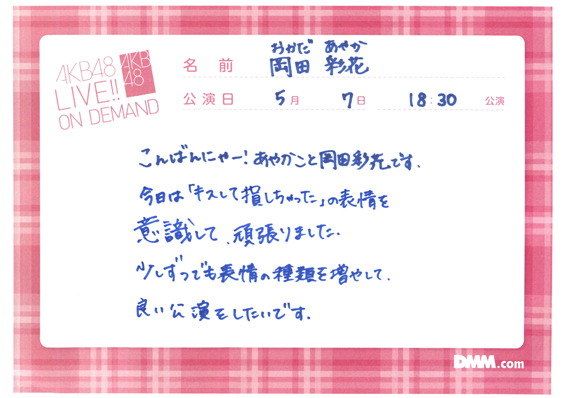 AKB48
LIVE!!
ON DEMAND
AKB
48
おかだ あやか
名前 岡田 彩花
公演日 5月 7日 18:30 公演
こんばんにゃー!あやかこと岡田彩花です.
今日は「キスして損しちゃった」の表情を
意識して、頑張りました.
少しずつでも表情の種類を増やして、
良い公演をしたいです.
DMM.com